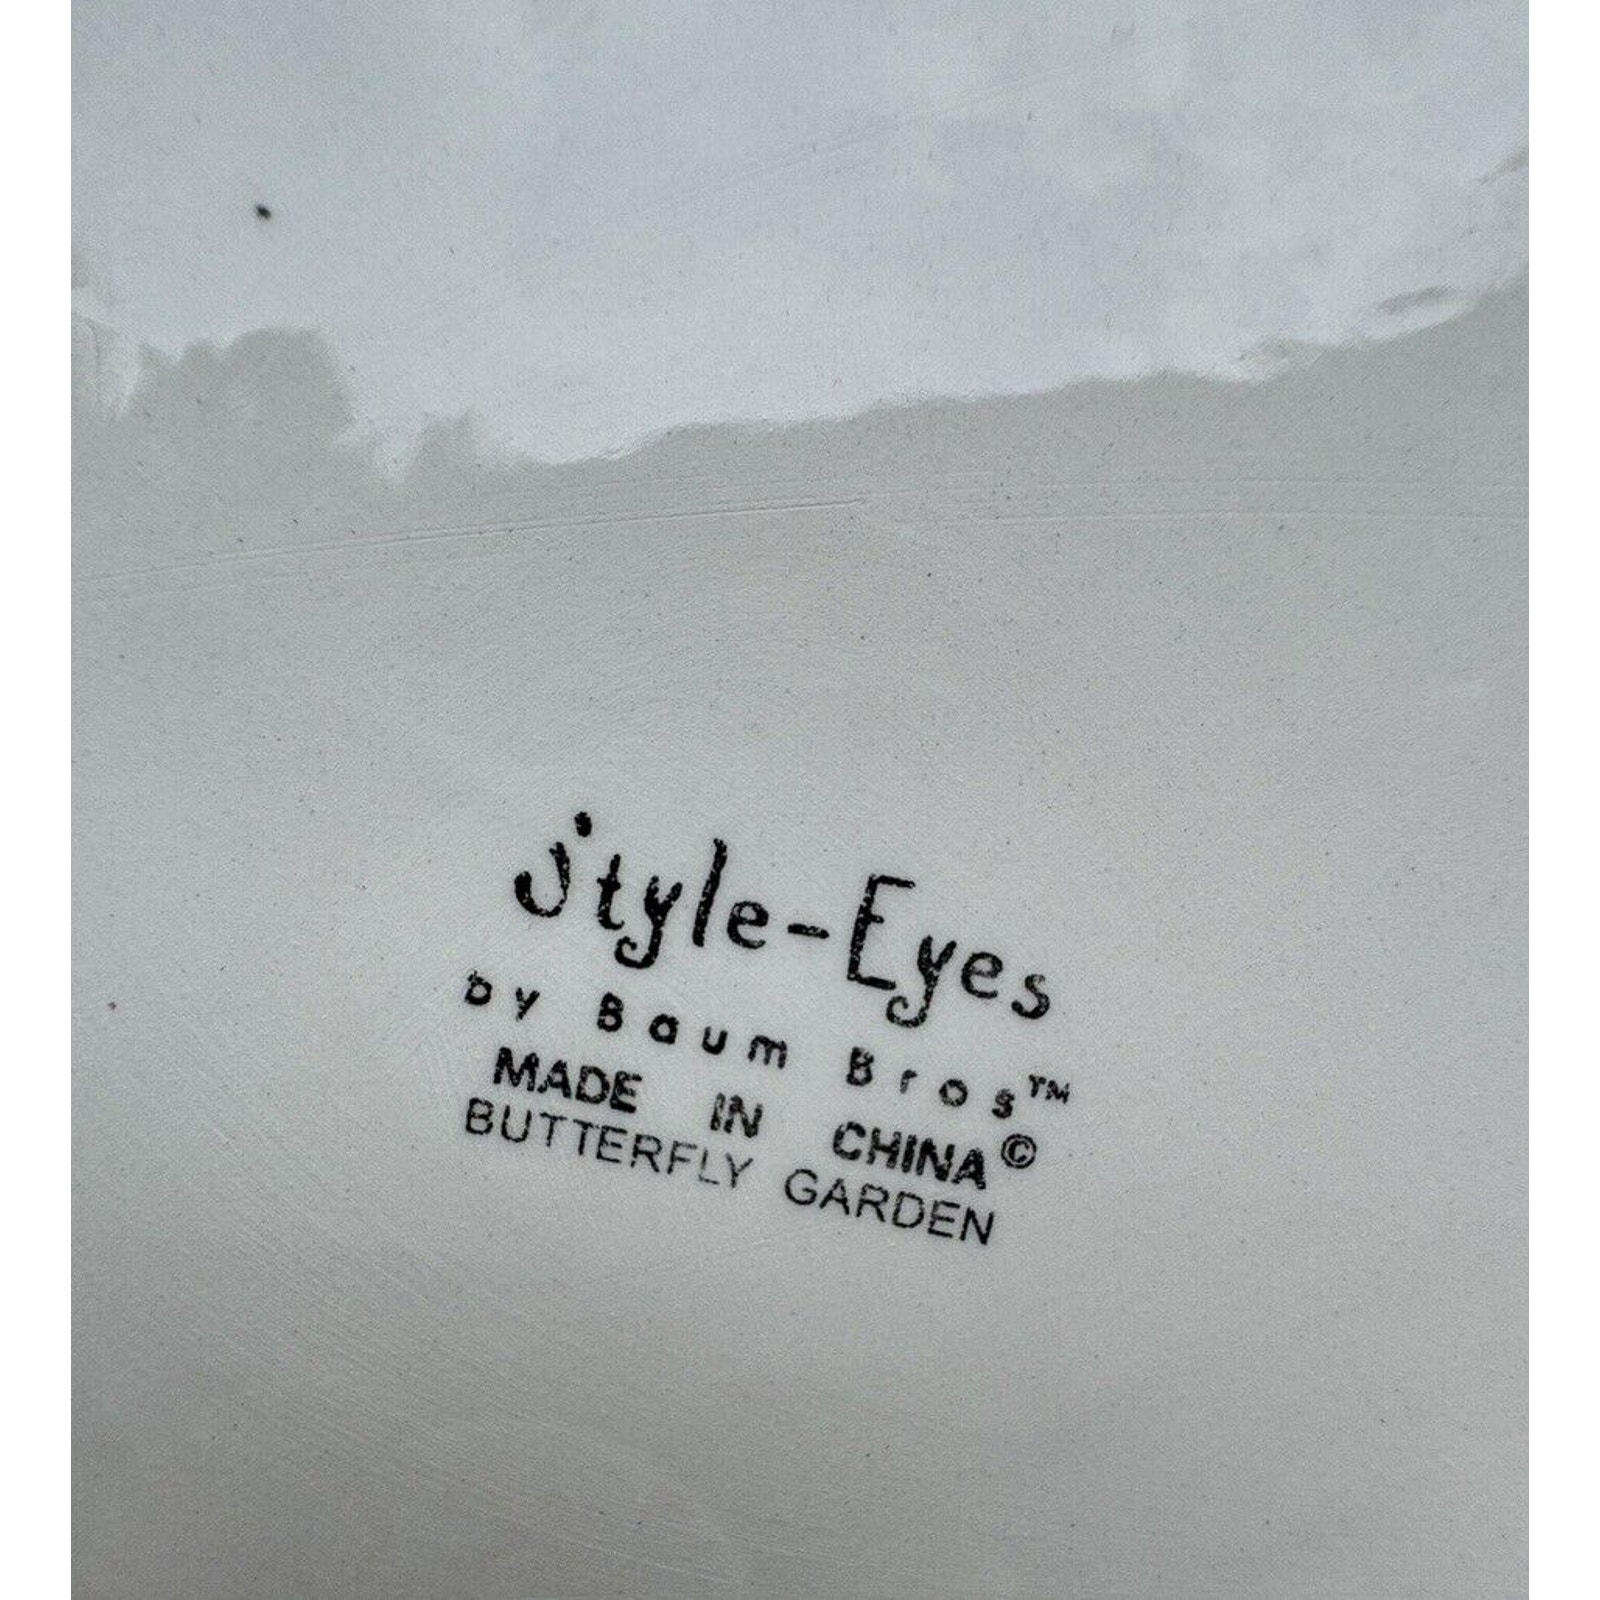 Style-Eyes
by Baum Bros™
MADE IN CHINA©
BUTTERFLY GARDEN